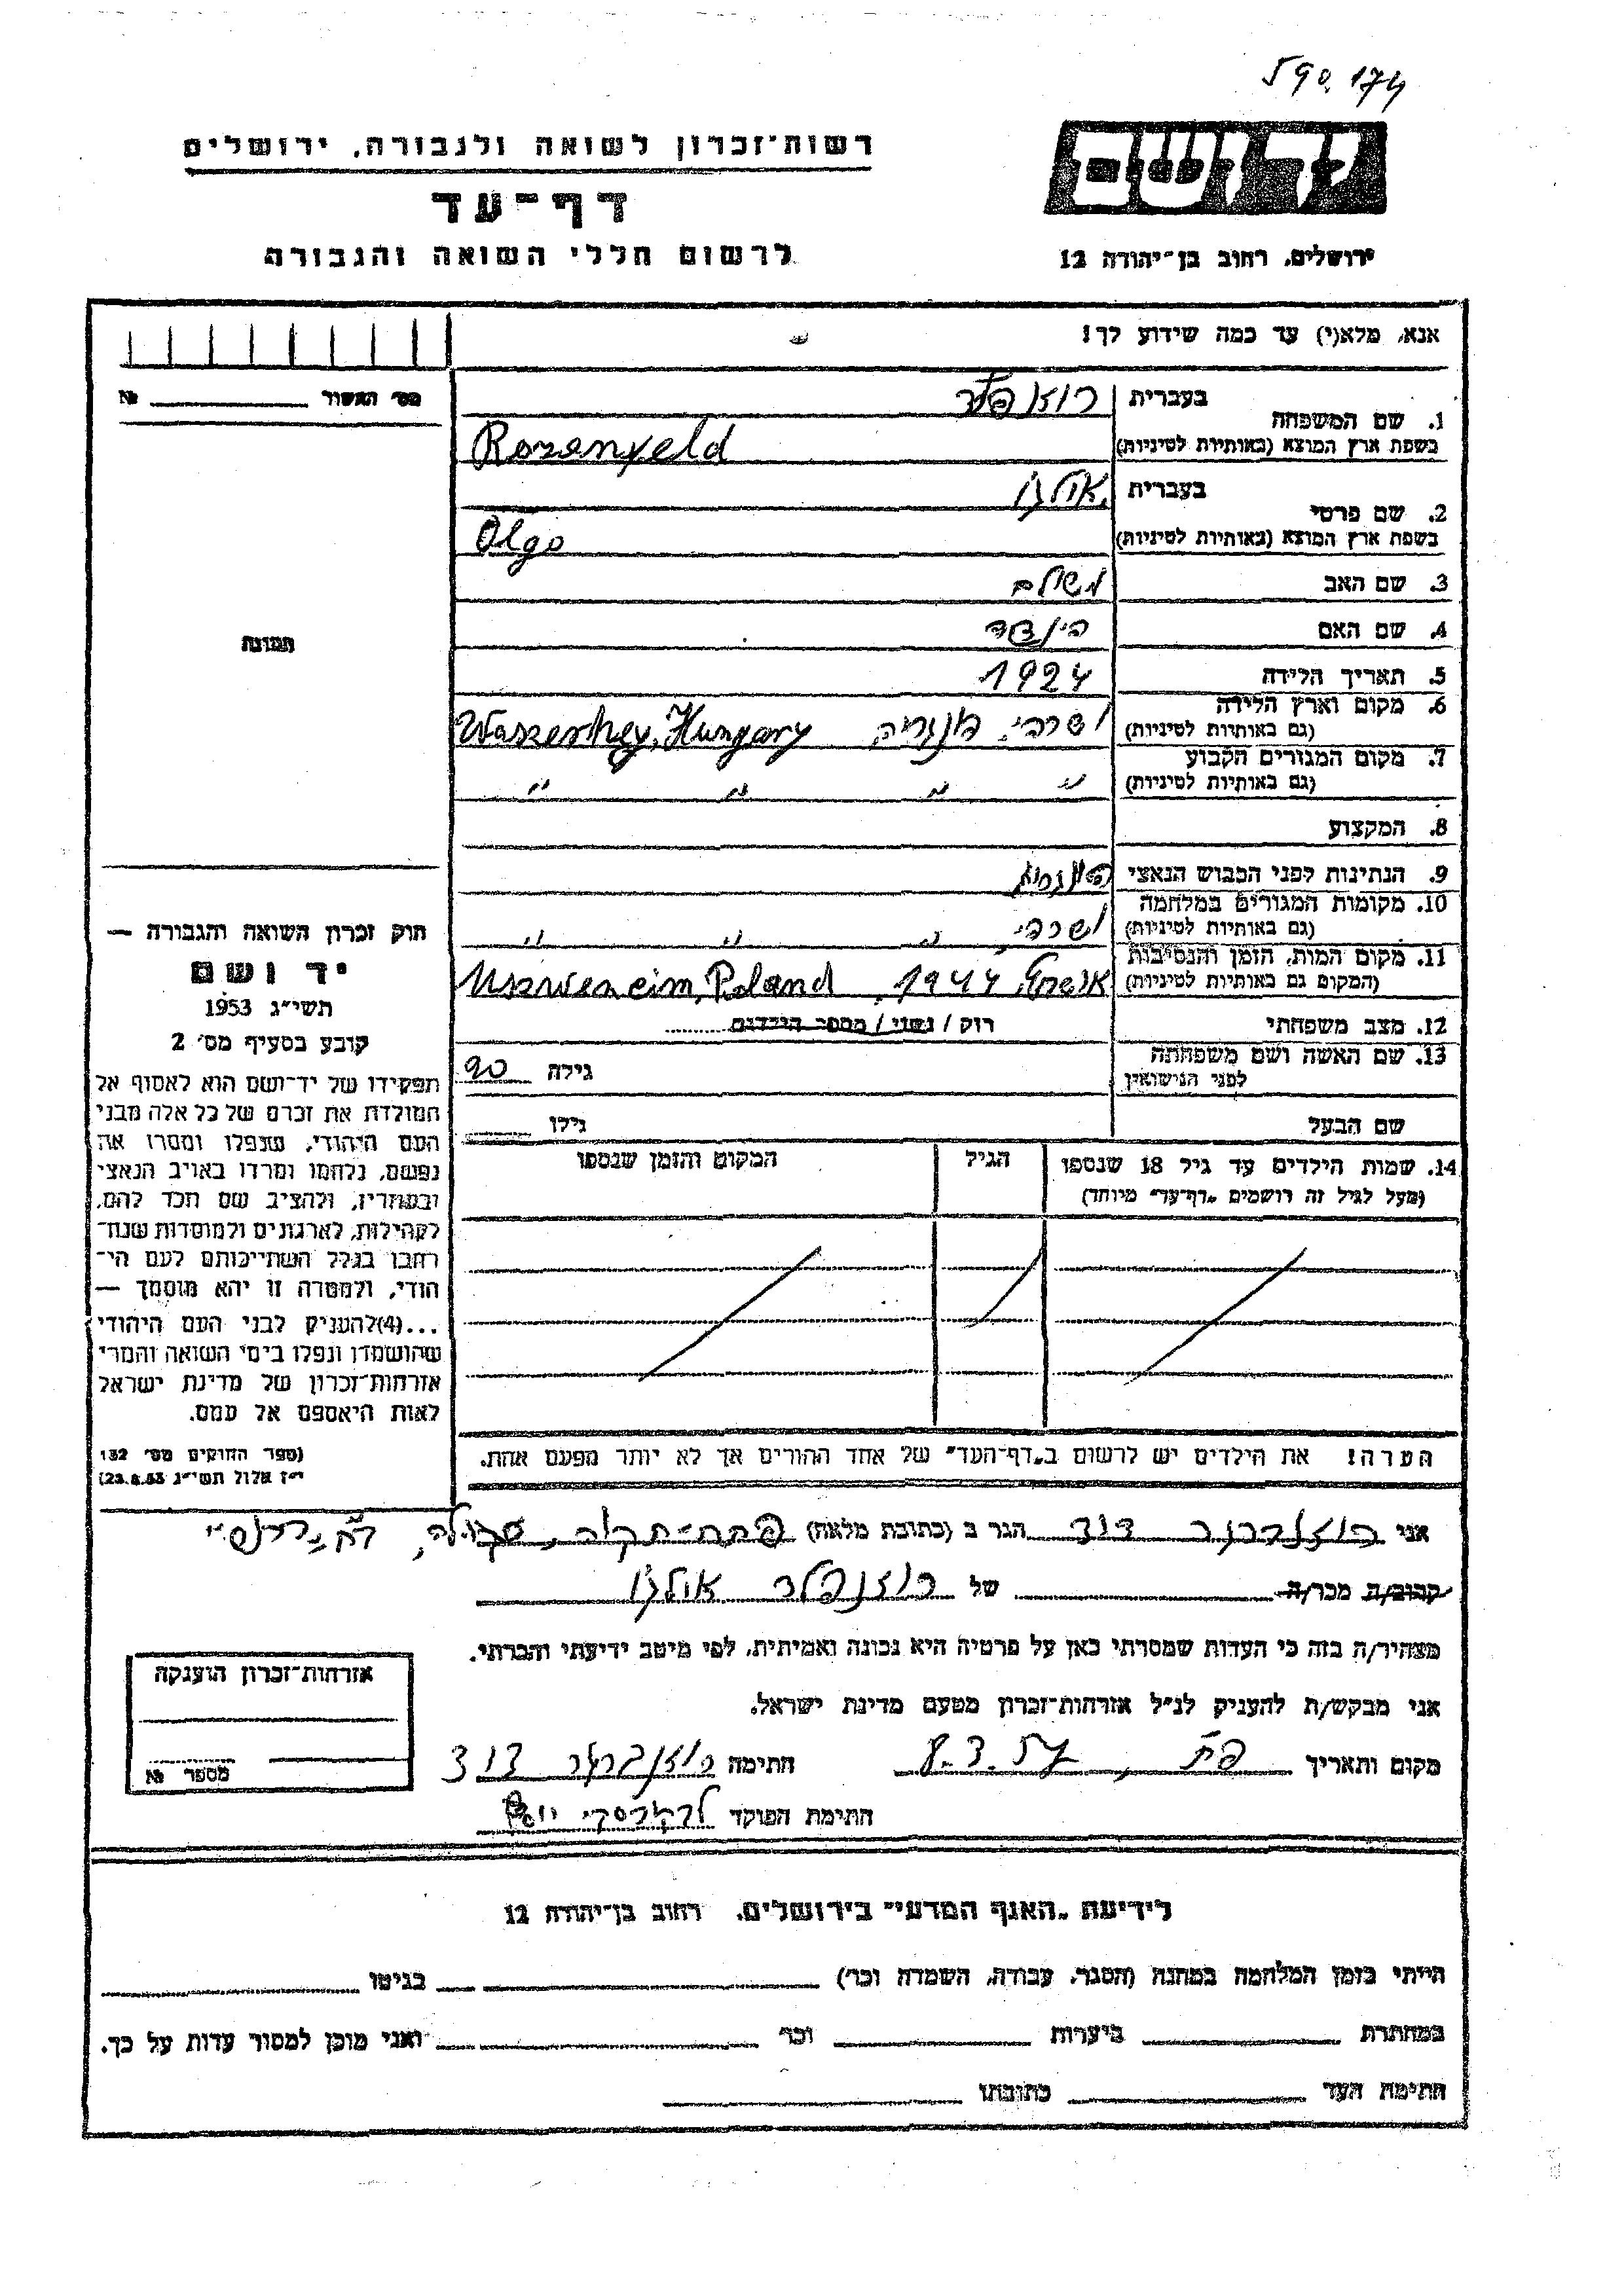 590.174
רשות־זכרון לשואה ולגבורה, ירושלים
דף־עד
לרשום חללי השואה והגבורה
ידושם
ירושלים, רחוב בן־יהודה 12
אנא, מלא(י) עד כמה שידוע לך!
מס׳ האשור № 
תמונה
חוק זכרון השואה והגבורה —
יד ושם
תשי״ג 1953
קובע בסעיף מס׳ 2
תפקידו של יד־ושם הוא לאסוף אל
המולדת את זכרם של כל אלה מבני
העם היהודי, שנפלו ומסרו את
נפשם, נלחמו ומרדו באויב הנאצי
ובעוזריו, ולהציב שם חכד להם,
לקהילות, לארגונים ולמוסדות שנח־
רחבו בגלל השתייכותם לעם הי־
הודי, ולמטרה זו יהא מוסמך —
...(4)להעניק לבני העם היהודי
שהושמדו ונפלו בימי השואה והמרי
אזרחות־זכרון של מדינת ישראל
לאות היאספם אל עמם.
(ספר החוקים מס׳ 132
י״ז אלול תשי״ג 23.8.53)
1. שם המשפחה בעברית רוזנפלד
בשפת ארץ המוצא (באותיות לטיניות) Rozenfeld
2. שם פרטי בעברית אולגו
בשפת ארץ המוצא (באותיות לטיניות) Olgo
3. שם האב משולם
4. שם האם הינדה
5. תאריך הלידה 1924
6. מקום וארץ הלידה
(גם באותיות לטיניות) הונגריה Waszerhey, Hungary
7. מקום המגורים הקבוע
(גם באותיות לטיניות) " " " "
8. המקצוע
9. הנתינות לפני הכבוש הנאצי הונגרית
10. מקומות המגורים במלחמה
(גם באותיות לטיניות) " " "
11. מקום המות, הזמן והנסיבות
(המקום גם באותיות לטיניות) 1944 Uszweneim, Poland
12. מצב משפחתי רוק / נשוי / מספר הילדים
13. שם האשה ושם משפחתה
לפני הנישואין גילה 20
שם הבעל גילו
14. שמות הילדים עד גיל 18 שנספו הגיל המקום והזמן שנספו
(מעל לגיל זה רושמים „דף־עד״ מיוחד)
הערה! את הילדים יש לרשום ב„דף־העד״ של אחד ההורים אך לא יותר מפעם אחת.
אני רוזנברגר דוד הגר ב (כתובת מלאה) פתח־תקוה,
קרוב/ה מכר/ה של רוזנפלד אולגו
מצהיר/ה בזה כי העדות שמסרתי כאן על פרטיה היא נכונה ואמיתית, לפי מיטב ידיעתי והכרתי.
אני מבקש/ת להעניק לנ״ל אזרחות־זכרון מטעם מדינת ישראל.
מקום ותאריך פת, חתימה רוזנברגר דוד
חתימת הפוקד
אזרחות־זכרון הוענקה
מספר №
לידיעת „האגף המדעי״ בירושלים, רחוב בן־יהודה 12
הייתי בזמן המלחמה במחנה (הסגר, עבודה, השמדה וכו׳) בגיטו
במחתרת ביערות וכו׳ ואני מוכן למסור עדות על כך.
חתימת העד כתובתו